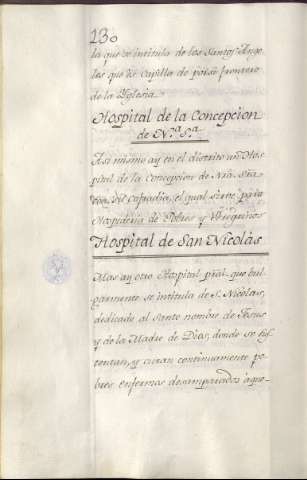 130
la que se intitula de los Santos Ange-
les que es Capilla de paso frontero
de la Yglesia.
Hospital de la Concepcion
de N.ª S.ª
Asi mismo ay en el distrito un Hos-
pital de la Concepcion de Nra. Sra.
con su Cofradia, el qual sirve para
Hospederia de Pobres y Peregrinos
Hospital de San Nicolás
Mas ay otro Hospital pral. que vul-
garmente se intitula de S. Nicolas,
dedicado al Santo nombre de Jesus
y de la Madre de Dios, donde se sus-
tentan, y curan continuamente po-
bres enfermos desamparados a que-